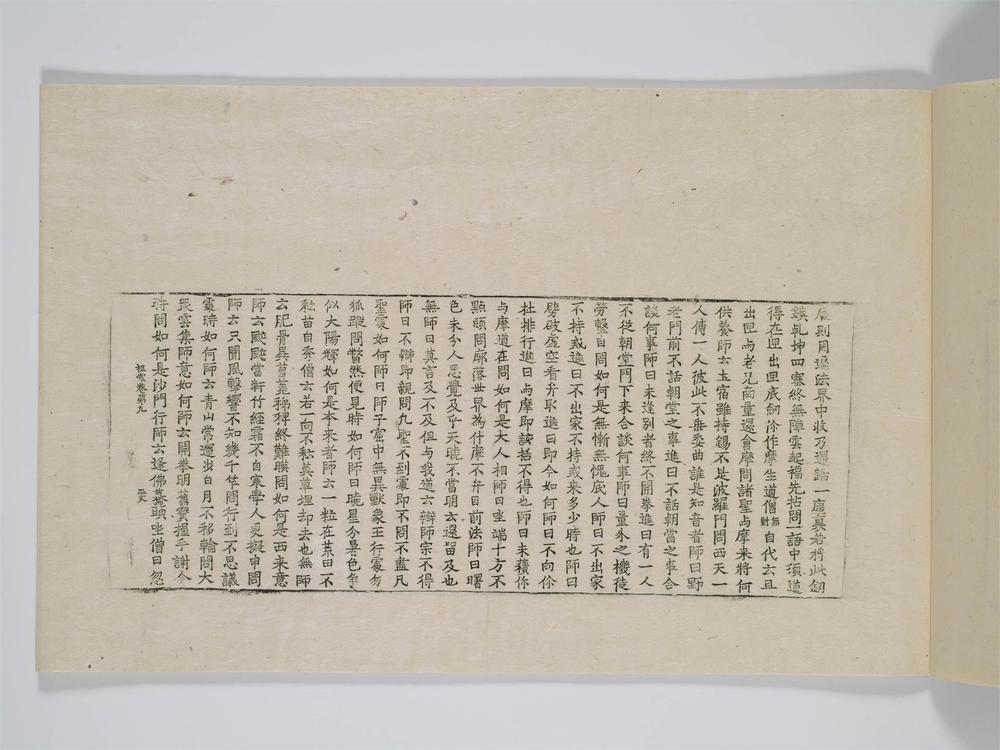 辰則周遍法界中收乃還歸一塵裏若將此劒
鎮乾坤四塞終無陣雲起福先拈問一語中須道
得在匣出匣底劒泠作摩生道僧無對自代云且
出匣与老兄商量還會摩問諸聖与摩來將何
供養師云土宿雖持錫不是波羅門問西天一
人傳一人彼此不垂委曲誰是知音者師曰野
老門前不話朝堂之事進曰不話朝當之事合
談何事師曰未逢别者終不開拳進曰有一人
不從朝堂門下来合談何事師曰量外之機徒
勞擊目問如何是無慚無愧底人師曰不出家
不持戒進曰不出家不持戒来多少時也師曰
劈破虚空看并取進曰即今如何師曰不向你
杜排行進曰与摩即諒話不得也師曰未藉你
与摩道在問如何是大人相師曰坐端十方不
點頭問廓落世界為什摩不弁目前法師曰曙
色未分人思覺及乎天曉不當明云還留及也
無師曰莫言及不及但与我道六辯師宗不得
師曰不辯即親問九聖不到處即不問不盡凡
聖處如何師曰師子窟中無異獸象王行處勿
狐蹤問瞥然便見時如何師曰曉星分曙色争
似大陽輝如何是本来者師云一粒在荒田不
耘苗自秀僧云若一向不耘莫草埋却去也無師
云肥骨異蒭蕘稊稗終難暎問如何是西来意
師云颭颭當軒竹經霜不自寒學人更擬申問
師云只聞風擊響不知幾千竿問行到不思議
處時如何師云青山常運步白月不移輪問大
衆雲集師意如何師云開拳明舊寶握手謝今
時問如何是沙門行師云逢佛驀頭坐僧曰忽
祖堂卷第九